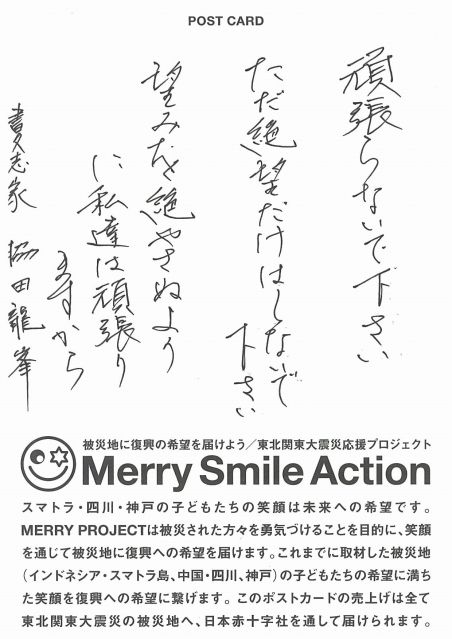 POST CARD
頑張らないで下さい
ただ絶望だけはしないで
下さい
望みを絶やさぬよう
に私達は頑張り
ますから
書久志家 協田龍峯
被災地に復興の希望を届けよう/東北関東大震災応援プロジェクト
Merry Smile Action
スマトラ・四川・神戸の子どもたちの笑顔は未来への希望です。
MERRY PROJECTは被災された方々を勇気づけることを目的に、笑顔
を通じて被災地に復興への希望を届けます。これまでに取材した被災地
(インドネシア・スマトラ島、中国・四川、神戸)の子どもたちの希望に満ち
た笑顔を復興への希望に繋げます。このポストカードの売上げは全て
東北関東大震災の被災地へ、日本赤十字社を通して届けられます。